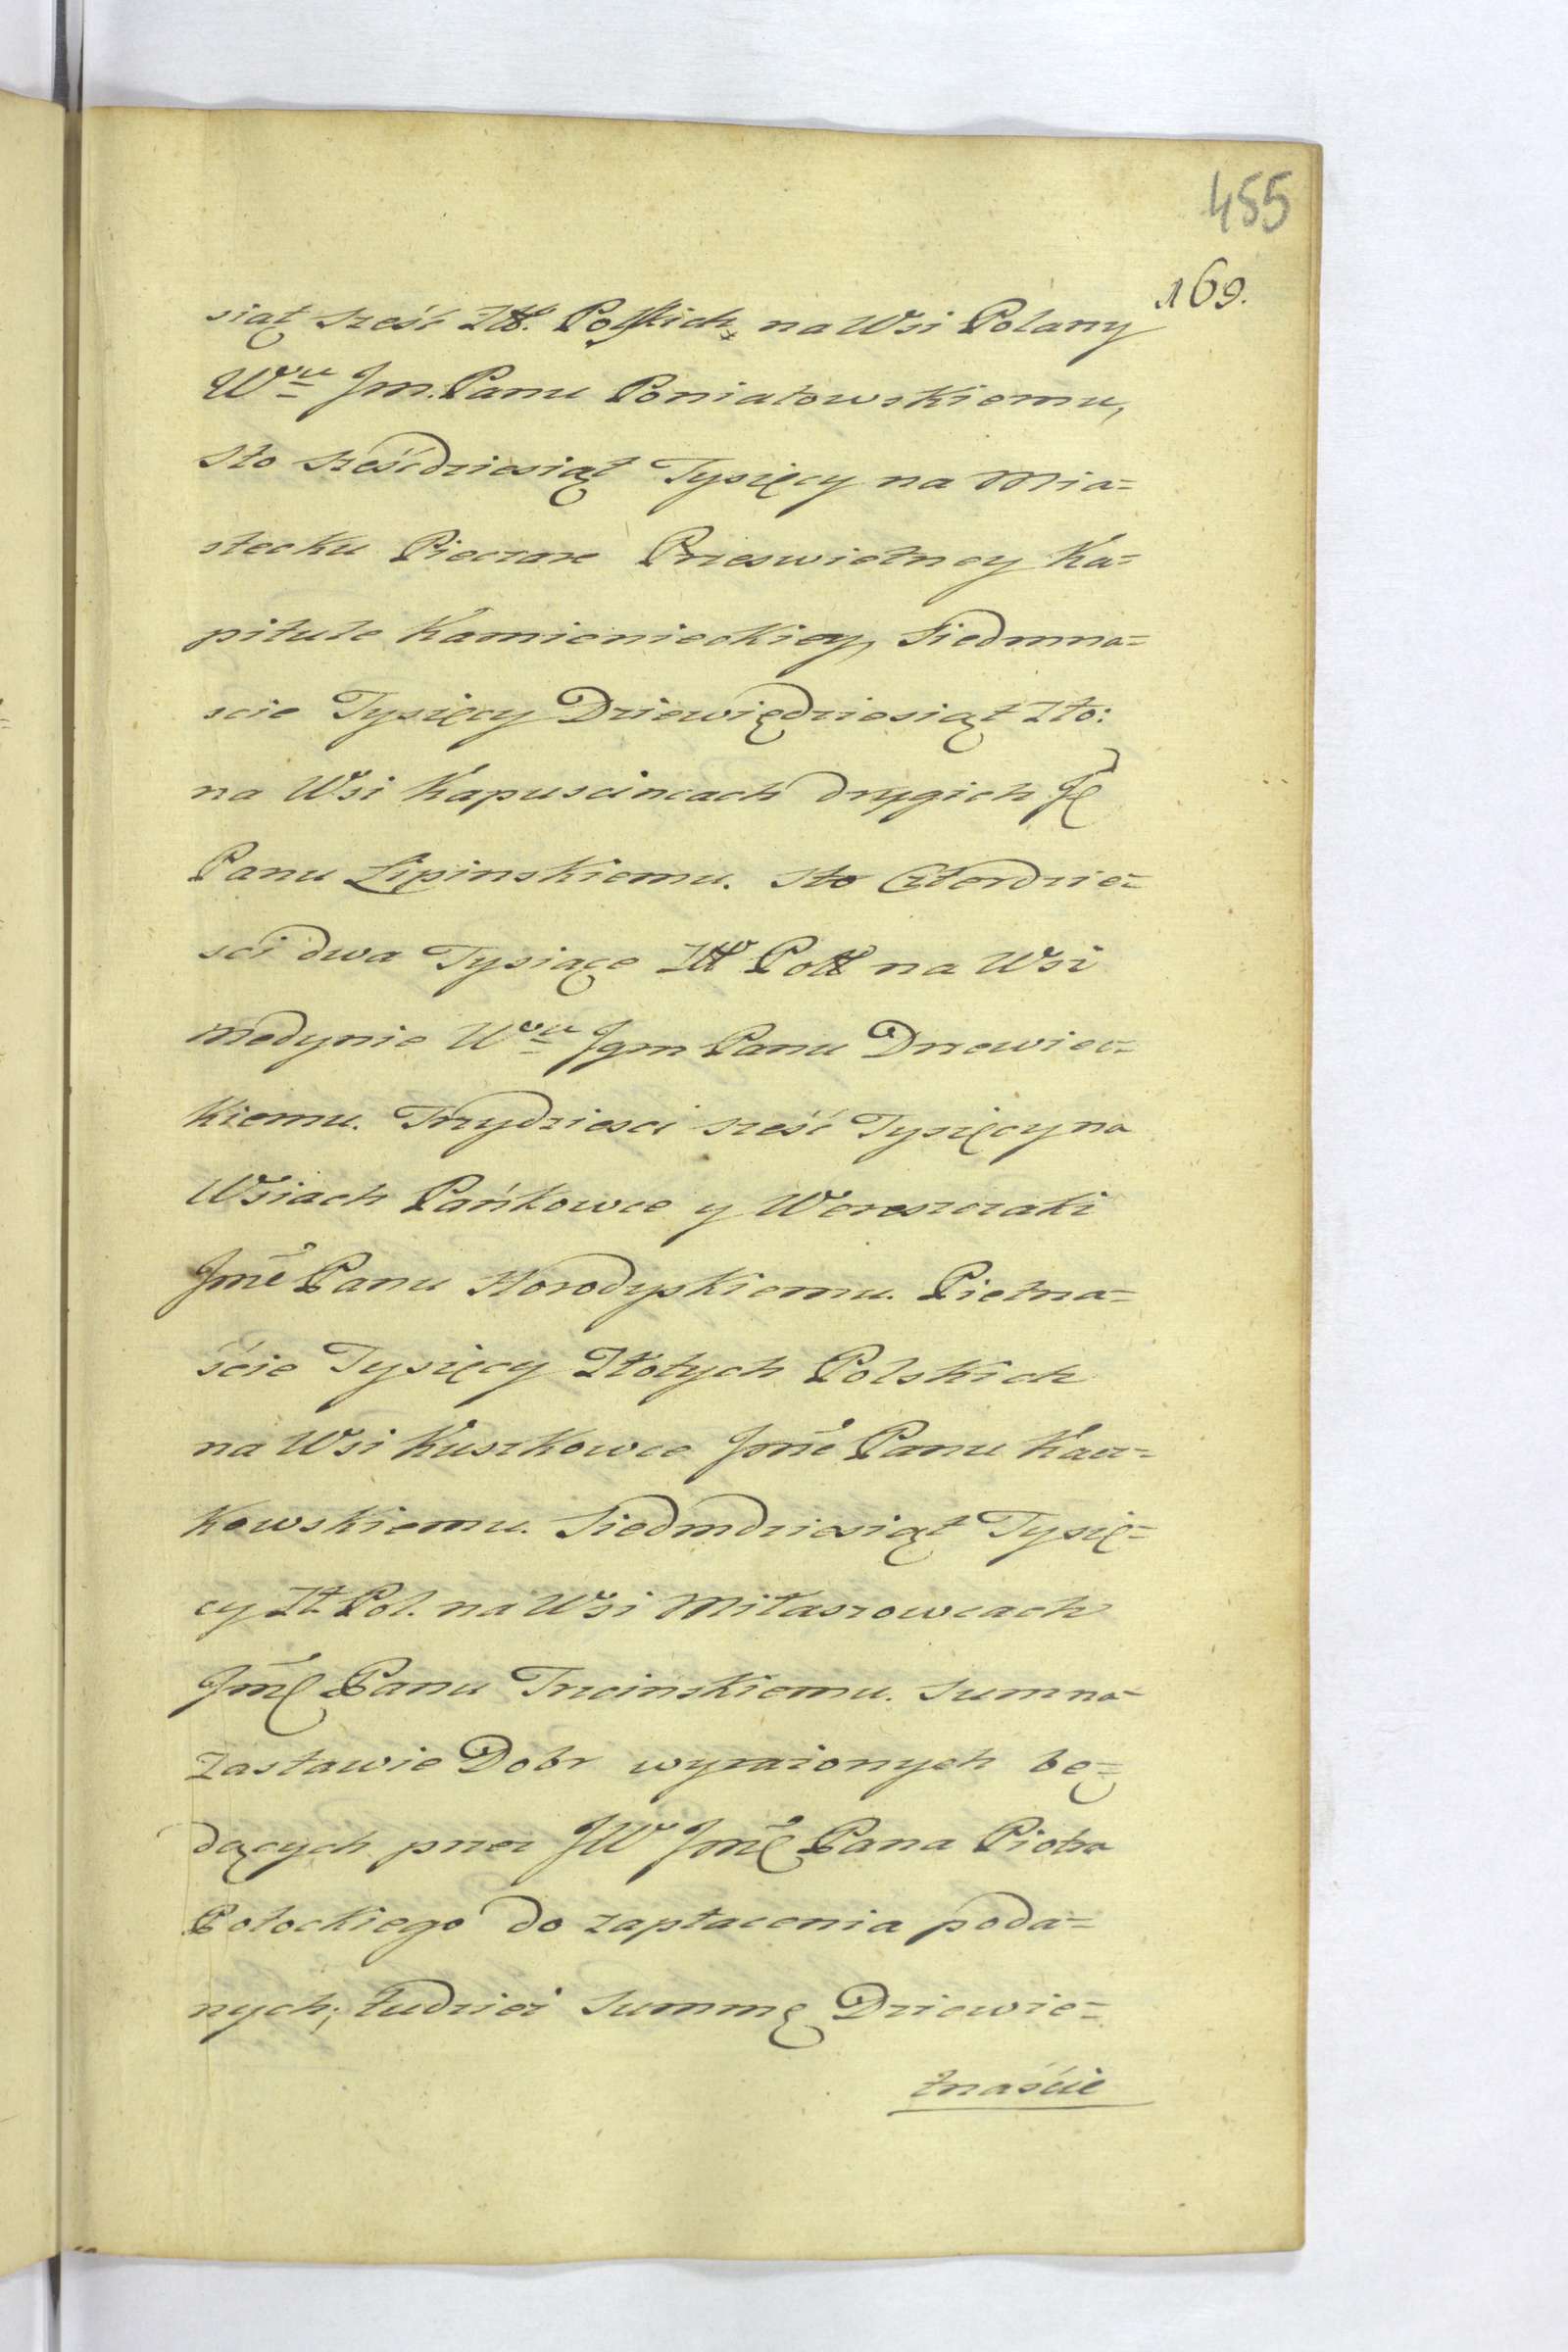 455
169.
siąt sześć Złł. Polskich na Wsi Polany
Wmu Jm. Panu Poniatowskiemu,
sto sześćdziesiąt Tysięcy na Mia=
steczku Pieczare Przeswietney Ka=
pitule Kamienieckiey, Siedmna=
scie Tysięcy Dziewiędziesiąt Zło:
na Wsi Kapuscincach drugich
Panu Lipinskiemu. Sto Czterdzie=
sci dwa Tysiące Złł Poll na Wsi
Medynie Wmu Jgm Panu Drzewiec=
kiemu. Trzydziesci sześć Tysięcy na
Wsiach Pańkowce y Wereszczaki
Jmć Panu Horodyskiemu. Pietna=
ście Tysięcy Złotych Polskich
na Wsi Kuszkowce Jmć Panu Kacz=
kowskiemu. Siedmdziesiąt Tysię=
cy Zł. Pol. na Wsi Miłaszowcach
Jmę Panu Trzcinskiemu. Summ na
zastawie Dobr wyrażonych bę=
dących przez JW Jmę Pana Piotra
Potockiego do zapłacenia poda=
nych; tudzież Summę Dziewie=
tnaście